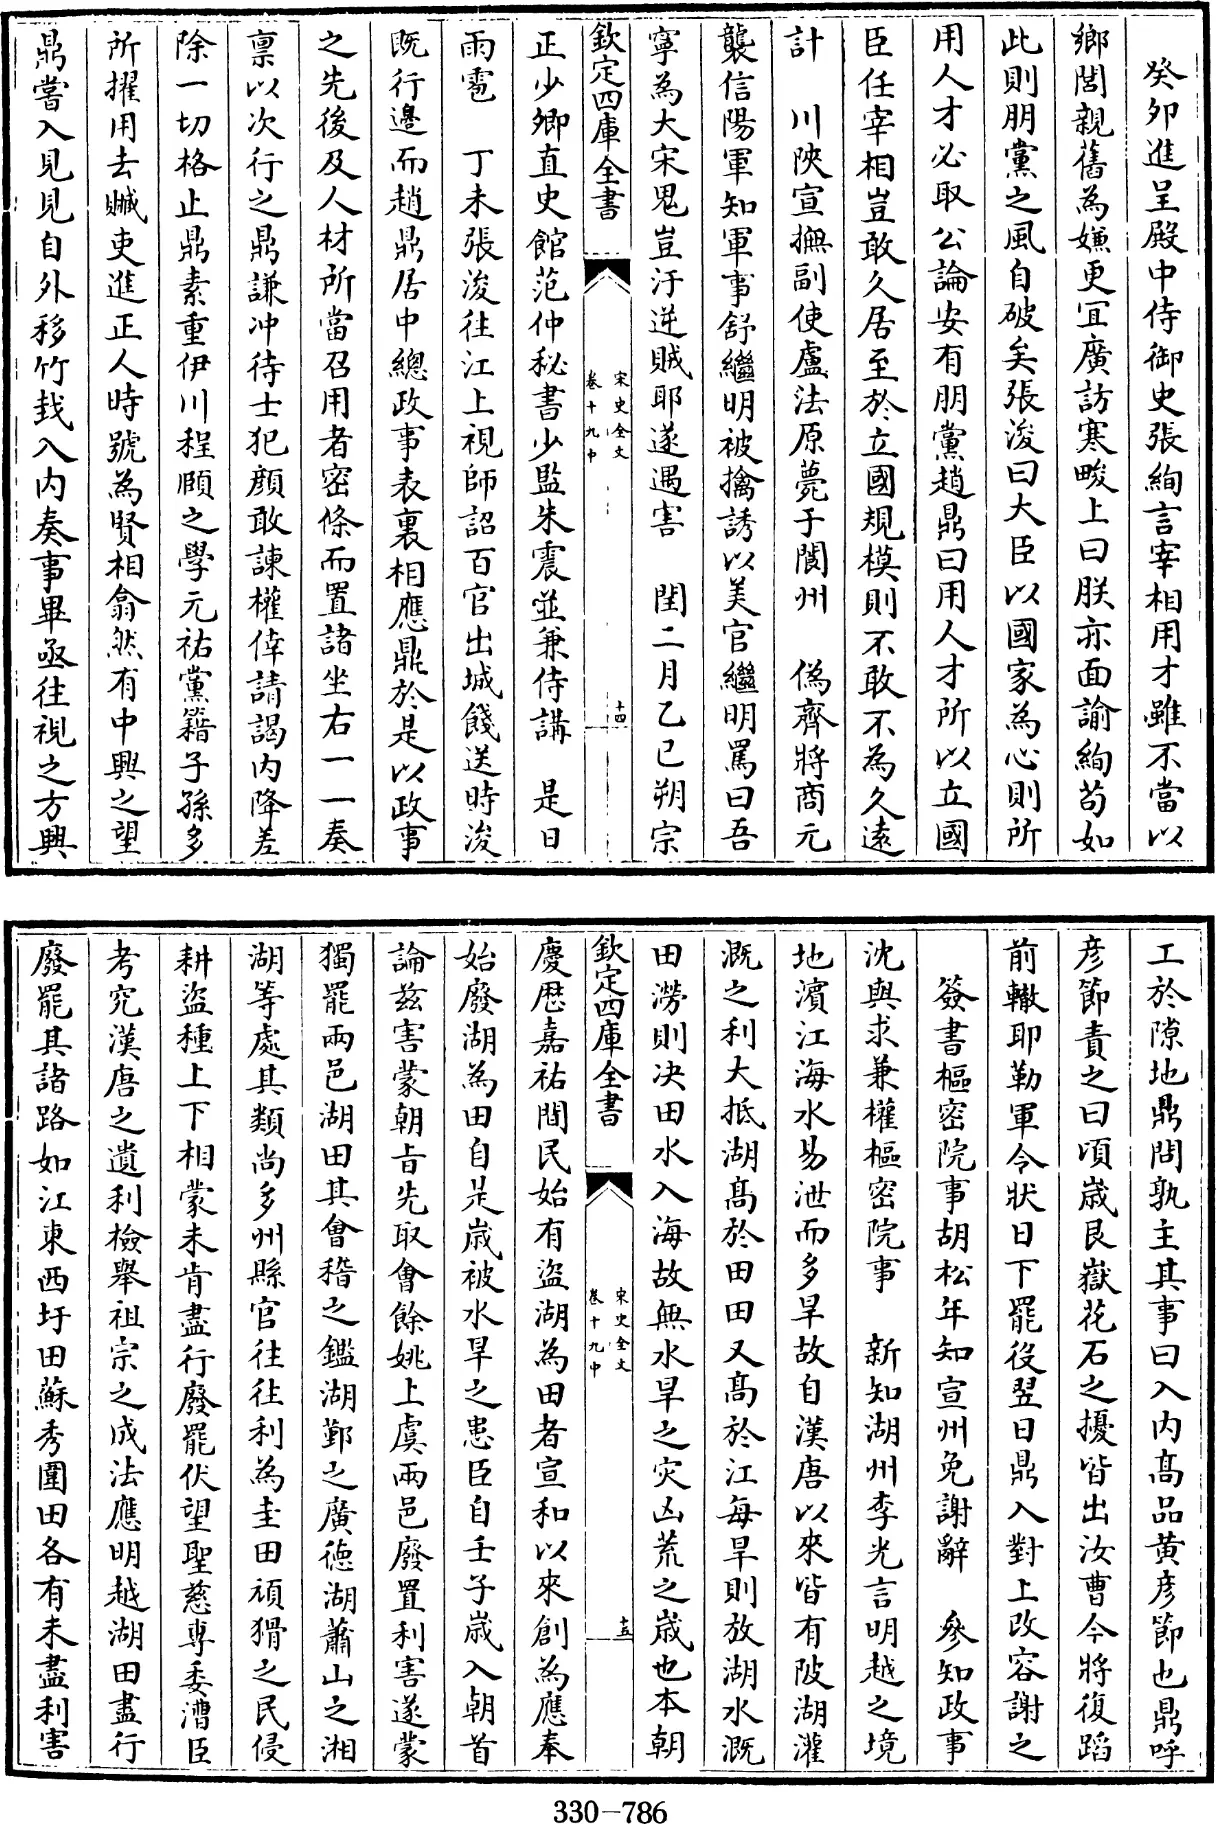 癸卯進呈殿中侍御史張絢言宰相用才雖不當以
鄉閭親舊為嫌更宜廣訪寒畯上曰朕亦面諭絢茍如
此則朋黨之風自破矣張浚曰大臣以國家為心則所
用人才必取公論安有朋黨趙鼎曰用人才所以立國
臣任宰相豈敢久居至於立國規模則不敢不為久遠
計　川陜宣撫副使盧法原薨于閬州　偽齊將商元
襲信陽軍知軍事舒繼明被擒誘以美官繼明罵曰吾
寧為大宋鬼豈汙逆賊耶遂遇害　閏二月乙巳朔宗
欽定四庫全書
宋史全文
卷十九中
十四
正少卿直史館范仲秘書少監朱震並兼侍講　是日
雨雹　丁未張浚往江上視師詔百官出城餞送時浚
既行邊而趙鼎居中總政事表裏相應鼎於是以政事
之先後及人材所當召用者密條而置諸坐右一一奏
稟以次行之鼎謙冲待士犯顔敢諫權倖請謁内降差
除一切格止鼎素重伊川程頤之學元祐黨籍子孫多
所擢用去贓吏進正人時號為賢相翕然有中興之望
鼎嘗入見見自外移竹栽入内奏事畢亟往視之方興
工於隙地鼎問孰主其事曰入内高品黄彦節也鼎呼
彦節責之曰頃嵗艮嶽花石之擾皆出汝曹今將復蹈
前轍耶勒軍令狀日下罷役翌日鼎入對上改容謝之
簽書樞密院事胡松年知宣州免謝辭　參知政事
沈與求兼權樞密院事　新知湖州李光言明越之境
地濵江海水易泄而多旱故自漢唐以來皆有陂湖灌
溉之利大抵湖高於田田又高於江每旱則放湖水溉
田澇則決田水入海故無水旱之灾凶荒之嵗也本朝
欽定四庫全書
宋史全文
卷十九中
十五
慶厯嘉祐間民始有盜湖為田者宣和以來創為應奉
始廢湖為田自是嵗被水旱之患臣自壬子嵗入朝首
論兹害蒙朝旨先取會餘姚上虞兩邑廢置利害遂蒙
獨罷兩邑湖田其會稽之鑑湖鄞之廣徳湖蕭山之湘
湖等處其類尚多州縣官往往利為圭田頑猾之民侵
耕盜種上下相蒙未肯盡行廢罷伏望聖慈專委漕臣
考究漢唐之遺利檢舉祖宗之成法應明越湖田盡行
廢罷其諸路如江東西圩田蘇秀圍田各有未盡利害
330-786